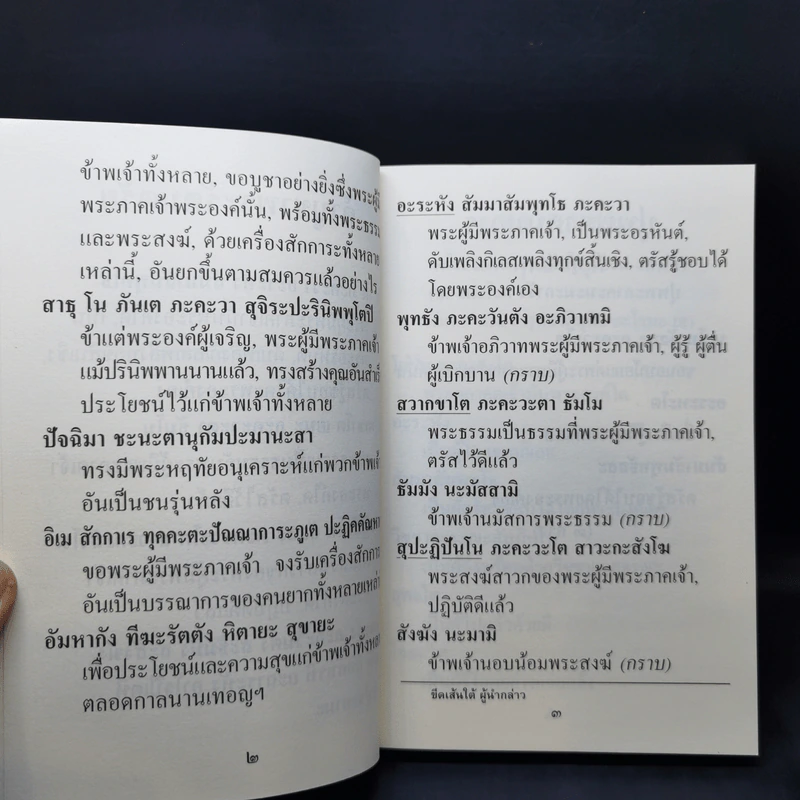 ข้าพเจ้าทั้งหลาย, ขอบูชาอย่างยิ่งซึ่งพระผู้มี
พระภาคเจ้าพระองค์นั้น, พร้อมทั้งพระธรรม
และพระสงฆ์, ด้วยเครื่องสักการะทั้งหลาย
เหล่านี้, อันยกขึ้นตามสมควรแล้วอย่างไร
สาธุ โน ภันเต ภะคะวา สุจิระปะรินิพพุโตปิ
ข้าแต่พระองค์ผู้เจริญ, พระผู้มีพระภาคเจ้า
แม้ปรินิพพานนานแล้ว, ทรงสร้างคุณอันสำเร็
ประโยชน์ไว้แก่ข้าพเจ้าทั้งหลาย
ปัจฉิมา ชะนะตานุกัมปะมานะสา
ทรงมีพระหฤทัยอนุเคราะห์แก่พวกข้าพเจ้า
อันเป็นชนรุ่นหลัง
อิเม สักกาเร ทุคคะตะปัณณาการะภูเต ปะฏิคคัณหา
ขอพระผู้มีพระภาคเจ้า จงรับเครื่องสักการ
อันเป็นบรรณาการของคนยากทั้งหลายเหล่า
อัมหากัง ทีฆะรัตตัง หิตายะ สุขายะ
เพื่อประโยชน์และความสุขแก่ข้าพเจ้าทั้งหล
ตลอดกาลนานเทอญฯ
๒
อะระหัง สัมมาสัมพุทโธ ภะคะวา
พระผู้มีพระภาคเจ้า, เป็นพระอรหันต์,
ดับเพลิงกิเลสเพลิงทุกข์สิ้นเชิง, ตรัสรู้ชอบได้
โดยพระองค์เอง
พุทธัง ภะคะวันตัง อะภิวาเทมิ
ข้าพเจ้าอภิวาทพระผู้มีพระภาคเจ้า, ผู้รู้ ผู้ตื่น
ผู้เบิกบาน (กราบ)
สวากขาโต ภะคะวะตา ธัมโม
พระธรรมเป็นธรรมที่พระผู้มีพระภาคเจ้า,
ตรัสไว้ดีแล้ว
ธัมมัง นะมัสสามิ
ข้าพเจ้านมัสการพระธรรม (กราบ)
สุปะฏิปันโน ภะคะวะโต สาวะกะสังโฆ
พระสงฆ์สาวกของพระผู้มีพระภาคเจ้า,
ปฏิบัติดีแล้ว
สังฆัง นะมามิ
ข้าพเจ้านอบน้อมพระสงฆ์ (กราบ)
ขีดเส้นใต้ ผู้นำกล่าว
๓